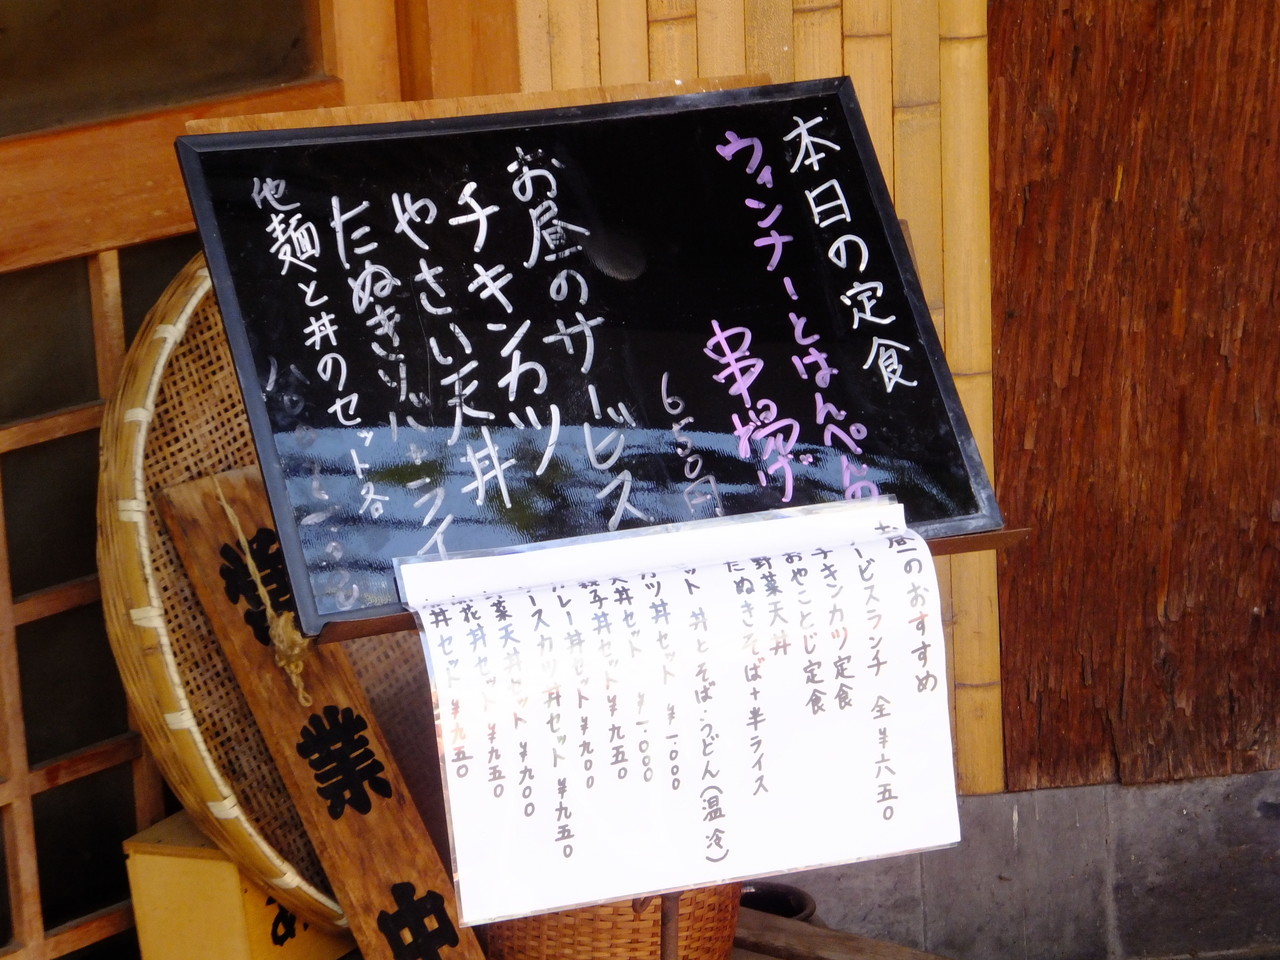 本日の定食
ウィンナーとはんぺんの
串揚げ
650円
お昼のサービス
チキンカツ
やさい天丼
たぬきソバ+ライ
他麺と丼のセット各
お昼のおすすめ
ービスランチ 全¥六五〇
チキンカツ定食
おやことじ定食
野菜天丼
たぬきそば+半ライス
ット 丼とそば・うどん(温 冷)
カツ丼セット ¥一.〇〇〇
天丼セット ¥一.〇〇〇
親子丼セット ¥九五〇
カレー丼セット ¥九〇〇
ースカツ丼セット ¥九五〇
菜天丼セット ¥九〇〇
花丼セット ¥九五〇
丼セット ¥九五〇
営業中